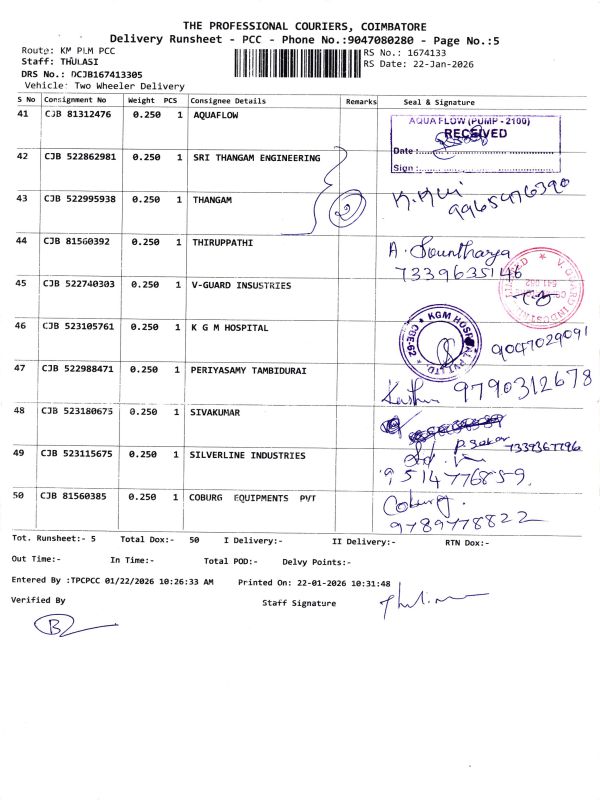 THE PROFESSIONAL COURIERS, COIMBATORE
Delivery Runsheet - PCC - Phone No.:9047080280 - Page No.:5
Route: KM PLM PCC
RS No.: 1674133
Staff: THULASI
RS Date: 22-Jan-2026
DRS No.: DCJB167413305
Vehicle: Two Wheeler Delivery
S No Consignment No Weight PCS Consignee Details Remarks Seal & Signature
41 CJB 81312476 0.250 1 AQUAFLOW
AQUA FLOW (PUMP - 2100)
RECEIVED
Date :
Sign :
42 CJB 522862981 0.250 1 SRI THANGAM ENGINEERING
43 CJB 522995938 0.250 1 THANGAM
2
9965476390
44 CJB 81560392 0.250 1 THIRUPPATHI
A. Sountharya
7339635146
45 CJB 522740303 1 V-GUARD INSUSTRIES
0.250
46 CJB 523105761 0.250 1 K G M HOSPITAL
KGM HOSPITAL PVT LTD
CBE-62
9047029091
47 CJB 522988471 0.250 1 PERIYASAMY TAMBIDURAI
9790312678
48 CJB 523180675 0.250 1 SIVAKUMAR
7339367796
49 CJB 523115675 0.250 1 SILVERLINE INDUSTRIES
9514776859.
50 CJB 81560385 0.250 1 COBURG EQUIPMENTS PVT
Coburg.
9789778822
Tot. Runsheet:- 5 Total Dox:- 50 I Delivery:- II Delivery:- RTN Dox:-
Out Time:- In Time:- Total POD:- Delvy Points:-
Entered By :TPCPCC 01/22/2026 10:26:33 AM Printed On: 22-01-2026 10:31:48
Verified By
Staff Signature